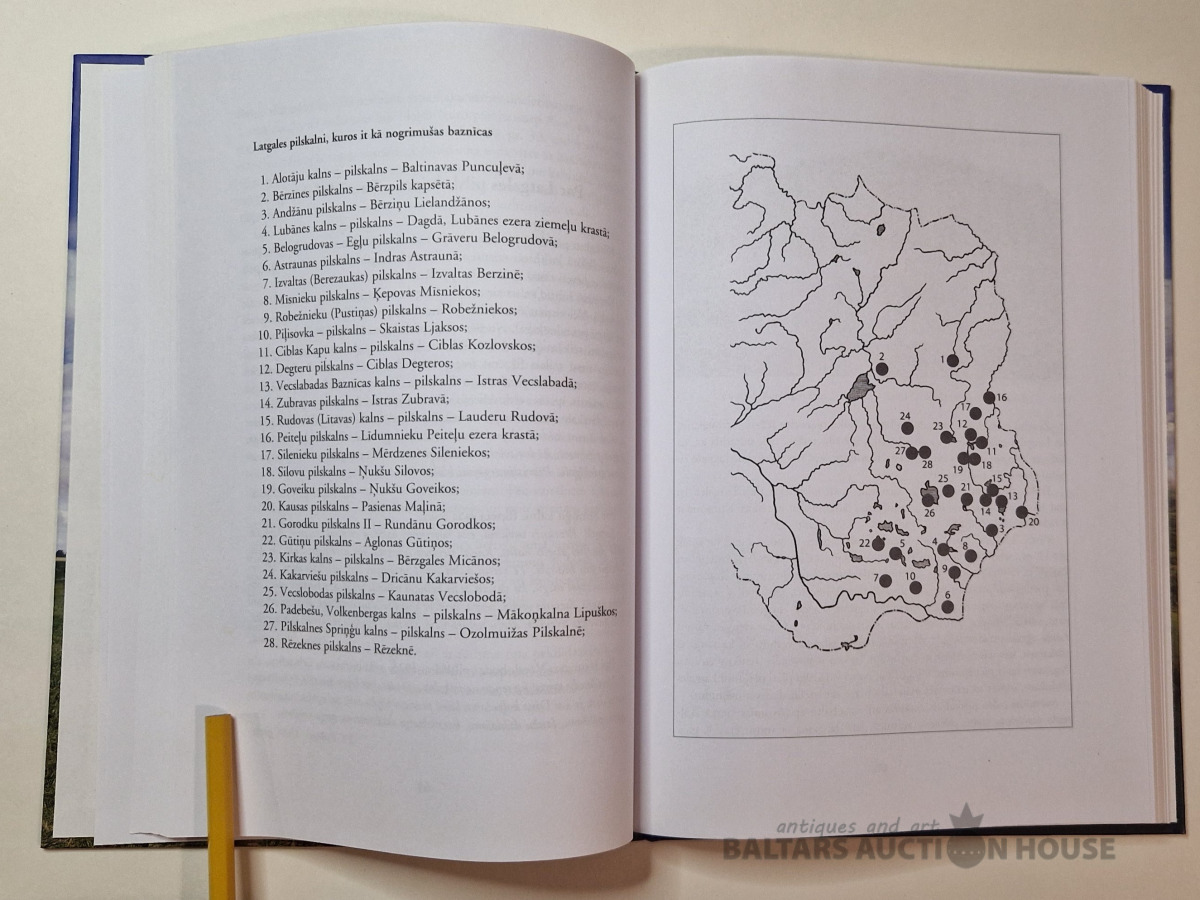 Latgales pilskalni, kuros it kā nogrimušas baznīcas
1. Alotāju kalns – pilskalns – Baltinavas Puncuļevā;
2. Bērzines pilskalns – Bērzpils kapsētā;
3. Andžānu pilskalns – Bērziņu Lielandžānos;
4. Lubānes kalns – pilskalns – Dagdā, Lubānes ezera ziemeļu krastā;
5. Belogrudovas – Egļu pilskalns – Grāveru Belogrudovā;
6. Astraunas pilskalns – Indras Astraunā;
7. Izvaltas (Berezaukas) pilskalns – Izvaltas Berzinē;
8. Misnieku pilskalns – Ķepovas Mīsniekos;
9. Robežnieku (Pustiņas) pilskalns – Robežniekos;
10. Piļisovka – pilskalns – Skaistas Ljaksos;
11. Ciblas Kapu kalns – pilskalns – Ciblas Kozlovskos;
12. Degteru pilskalns – Ciblas Degteros;
13. Vecslabadas Baznīcas kalns – pilskalns – Istras Vecslabadā;
14. Zubravas pilskalns – Istras Zubravā;
15. Rudovas (Lītavas) kalns – pilskalns – Lauderu Rudovā;
16. Peiteļu pilskalns – Lidumnieku Peiteļu ezera krastā;
17. Silenieku pilskalns – Mērdzenes Sileniekos;
18. Silovu pilskalns – Ņukšu Silovos;
19. Goveiku pilskalns – Ņukšu Goveikos;
20. Kausas pilskalns – Pasienas Maļinā;
21. Gorodku pilskalns II – Rundānu Gorodkos;
22. Gūtiņu pilskalns – Aglonas Gūtiņos;
23. Kirkas kalns – pilskalns – Bērzgales Micānos;
24. Kakarviešu pilskalns – Dricānu Kakarviešos;
25. Vecslobodas pilskalns – Kaunatas Vecslobodā;
26. Padebešu, Volkenbergas kalns – pilskalns – Mākoņkalna Lipuškos;
27. Pilskalnes Spriņģu kalns – pilskalns – Ozolmuižas Pilskalnē;
28. Rēzeknes pilskalns – Rēzeknē.
2
1
16
17
24
23
12
11
27
28
19
18
25
21
15
13
26
14
20
3
22
5
4
8
9
7
10
6
antiques and art
BALTARS AUCTION HOUSE